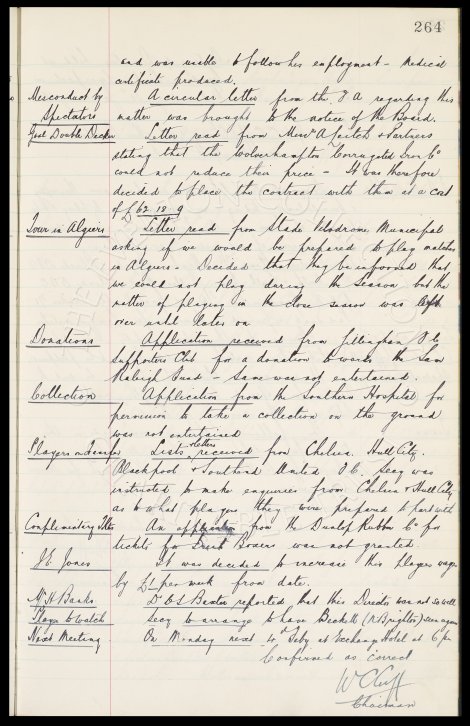 264
and was unable to follow his employment - Medical
certificate produced.
Misconduct by A circular letter from the F A regarding this
Spectators matter was brought to the notice of the Board.
Goal Double Decker Letter read from Messrs A Leitch & Partners
stating that the Wolverhampton Corrugated Iron Co
could not reduce their price - It was therefore
decided to place the contract with them at a cost
of £62.18.9
Tour in Algiers Letter read from Stade Velodrome Municipal
asking if we would be prepared to play matches
in Algiers - Decided that they be informed that
we could not play during the Season but the
matter of playing in the close season was left
over until later on
Donations Application received from Gillingham F.C.
Supporters Club for a donation towards the Sam
Raleigh Fund - Same was not entertained.
Collection Application from the Southern Hospital for
permission to take a collection on the ground
was not entertained
Players on Transfer Lists & letters received from Chelsea. Hull City.
Blackpool & Southend United F.C. Secy was
instructed to make enquiries from Chelsea & Hull City
as to what players they were prepared to part with
Complimentary Tkts An application from the Dunlop Rubber Co for
tickets for Boxers was not granted
J E Jones It was decided to increase this players wages
by £1 per week from date.
Mr H Banks Dr C S Baxter reported that this Director was not so well
Player to watch Secy to arrange to have Beckett (N. Brighton) seen again
Next Meeting On Monday next 4th Feby at Exchange Hotel at 6 pm
Confirmed as correct
W C Cuff
Chairman